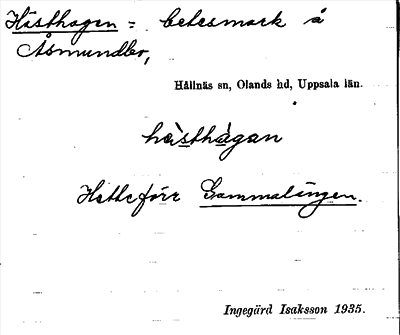 Hästhagen = betesmark å
Åsmundbo,
Hållnäs sn, Olands hd, Uppsala län.
hàsthàgan
Hette förr Gammalängen.
Ingegärd Isaksson 1935.